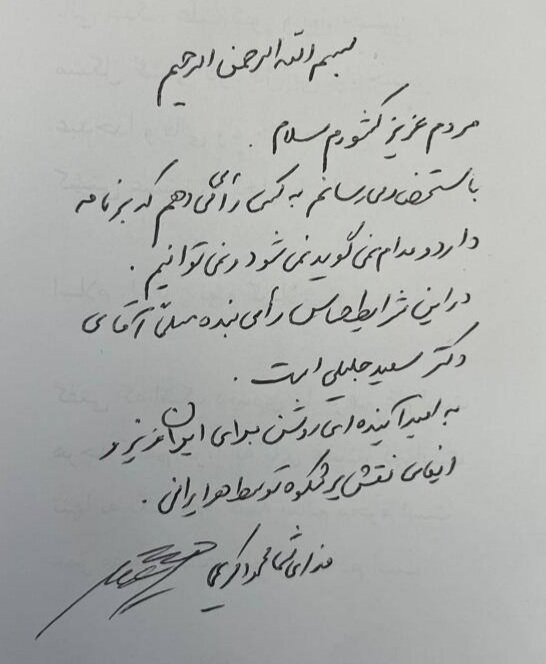 بسم الله الرحمن الرحیم
مردم عزیز کشورم سلام.
باستحضار می رسانم به کسی رأی می دهم که برنامه
دارد و مدام نمی گوید نمی شود و نمی توانیم.
در این شرایط حساس رأی بنده جناب آقای
دکتر سعید جلیلی است.
به امید آینده ای روشن برای ایران عزیز و
ایفای نقش پرشکوه توسط هر ایرانی.
فدای شما محمود کریمی